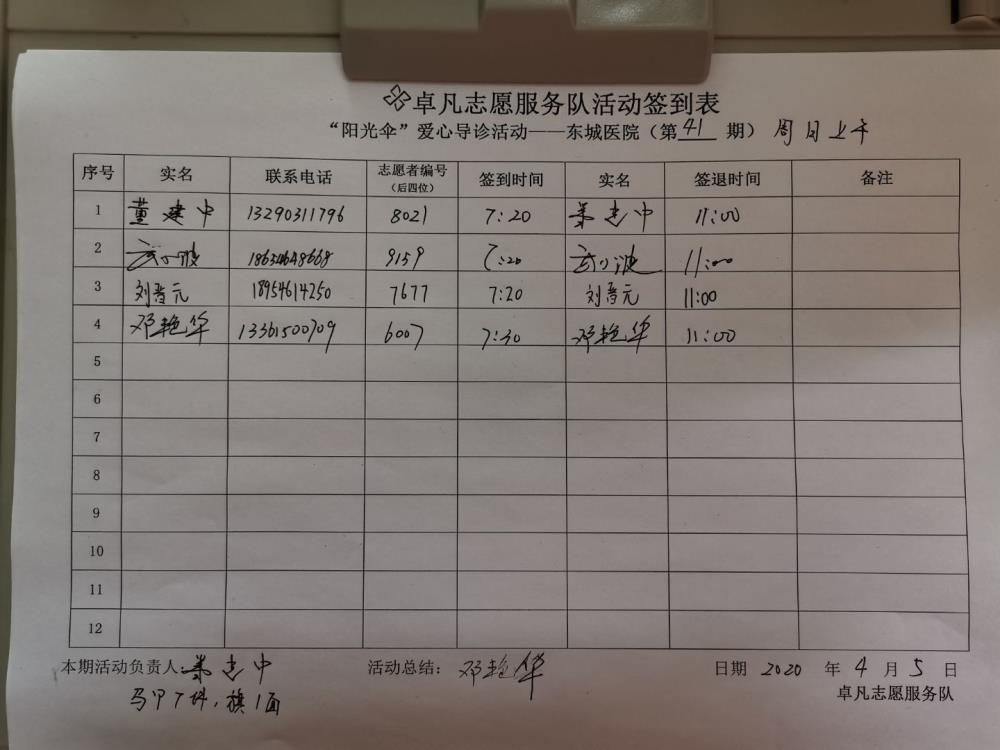 卓凡志愿服务队活动签到表
“阳光伞”爱心导诊活动——东城医院（第41期） 周日上午
序号 实名 联系电话 志愿者编号（后四位） 签到时间 实名 签退时间 备注
1 董建中 13290311796 8021 7:20 董建中 11:00
2 9159 7:20 11:00
3 刘晋元 18954614250 7677 7:20 刘晋元 11:00
4 邓艳华 13361500709 6007 7:30 邓艳华 11:00
5
6
7
8
9
10
11
12
本期活动负责人:董建中 活动总结：邓艳华 日期 2020 年 4 月 5 日
马甲7件，旗1面 卓凡志愿服务队